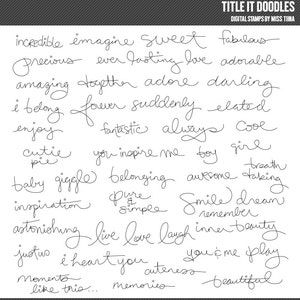 TITLE IT DOODLES
DIGITAL STAMPS BY MISS TIINA
incredible imagine sweet fabulous
precious ever lasting love adorable
amazing together adore darling
i belong forever suddenly elated
enjoy fantastic always cool
cutie pie you inspire me boy girl
baby giggle belonging awesome breath taking
inspiration pure & simple smile dream
remember
astonishing live love laugh inner beauty
just us i heart you you & me play
cuteness
moments like this... memories beautiful